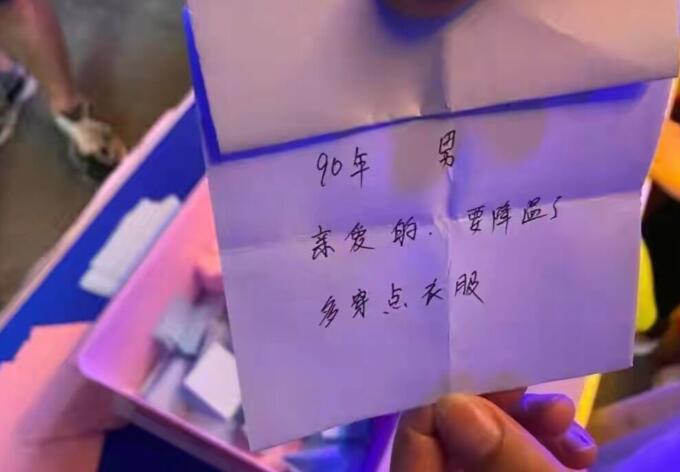 90年 男
亲爱的.要降温了
多穿点衣服